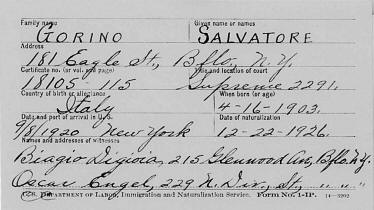 Family name Given name or names
GORINO SALVATORE
Address
181 Eagle St., Bflo., N.Y.
Certificate no. (or vol. and page) Title and location of court
18105-115 Supreme 2291.
Country of birth or allegiance When born (or age)
Italy 4-16-1903.
Date and port of arrival in U. S. Date of naturalization
9/8/1920 New York 12-22-1926.
Names and addresses of witnesses
Biagio Digioia, 215 Glenwood Av., Bflo. N.Y.
Oscar Engel, 229 N. Div., St., " " "
U.S. DEPARTMENT OF LABOR, Immigration and Naturalization Service. Form No. 1-IP. 14-3202